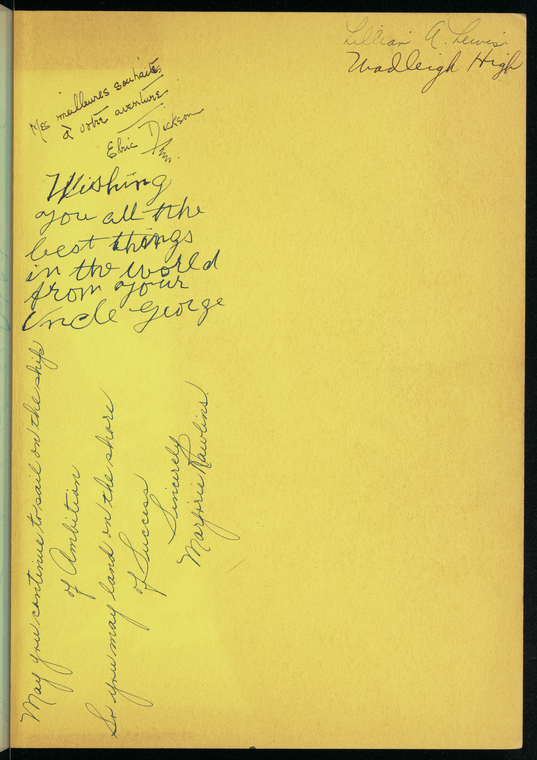 Lillian A. Lewis.
Wadleigh High
Mes meilleures souhaits
à votre aventure
Elric Dickson
Wishing
you all the
best things
in the world
from your
Uncle George
May you continue to sail on the ship
of Ambition
So you may land on the shore
of Success
Sincerely
Marjorie Rawlins.